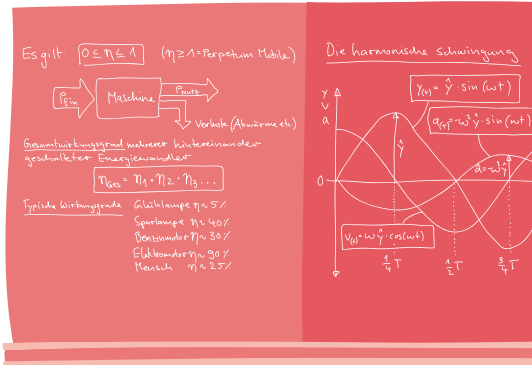 Es gilt: 0 ≤ η ≤ 1 (η ≥ 1 = Perpetum Mobile)
P_ein Maschine P_nutz
Verluste (Abwärme etc)
Gesamtwirkungsgrad mehrerer hintereinander
geschalteter Energiewandler
η_Ges = η₁ · η₂ · η₃ ...
Typische Wirkungsgrade Glühlampe η ~ 5%
Sparlampe η ~ 40%
Benzinmotor η ~ 30%
Elektromotor η ~ 90%
Mensch η ~ 25%
Die harmonische Schwingung
y
v
a
y_(t) = ŷ · sin(ωt)
a_(t) = -ω² ŷ · sin(ωt)
ŷ
â = -ω² ŷ
0
v_(t) = ω ŷ · cos(ωt)
1/4 T 1/2 T 3/4 T